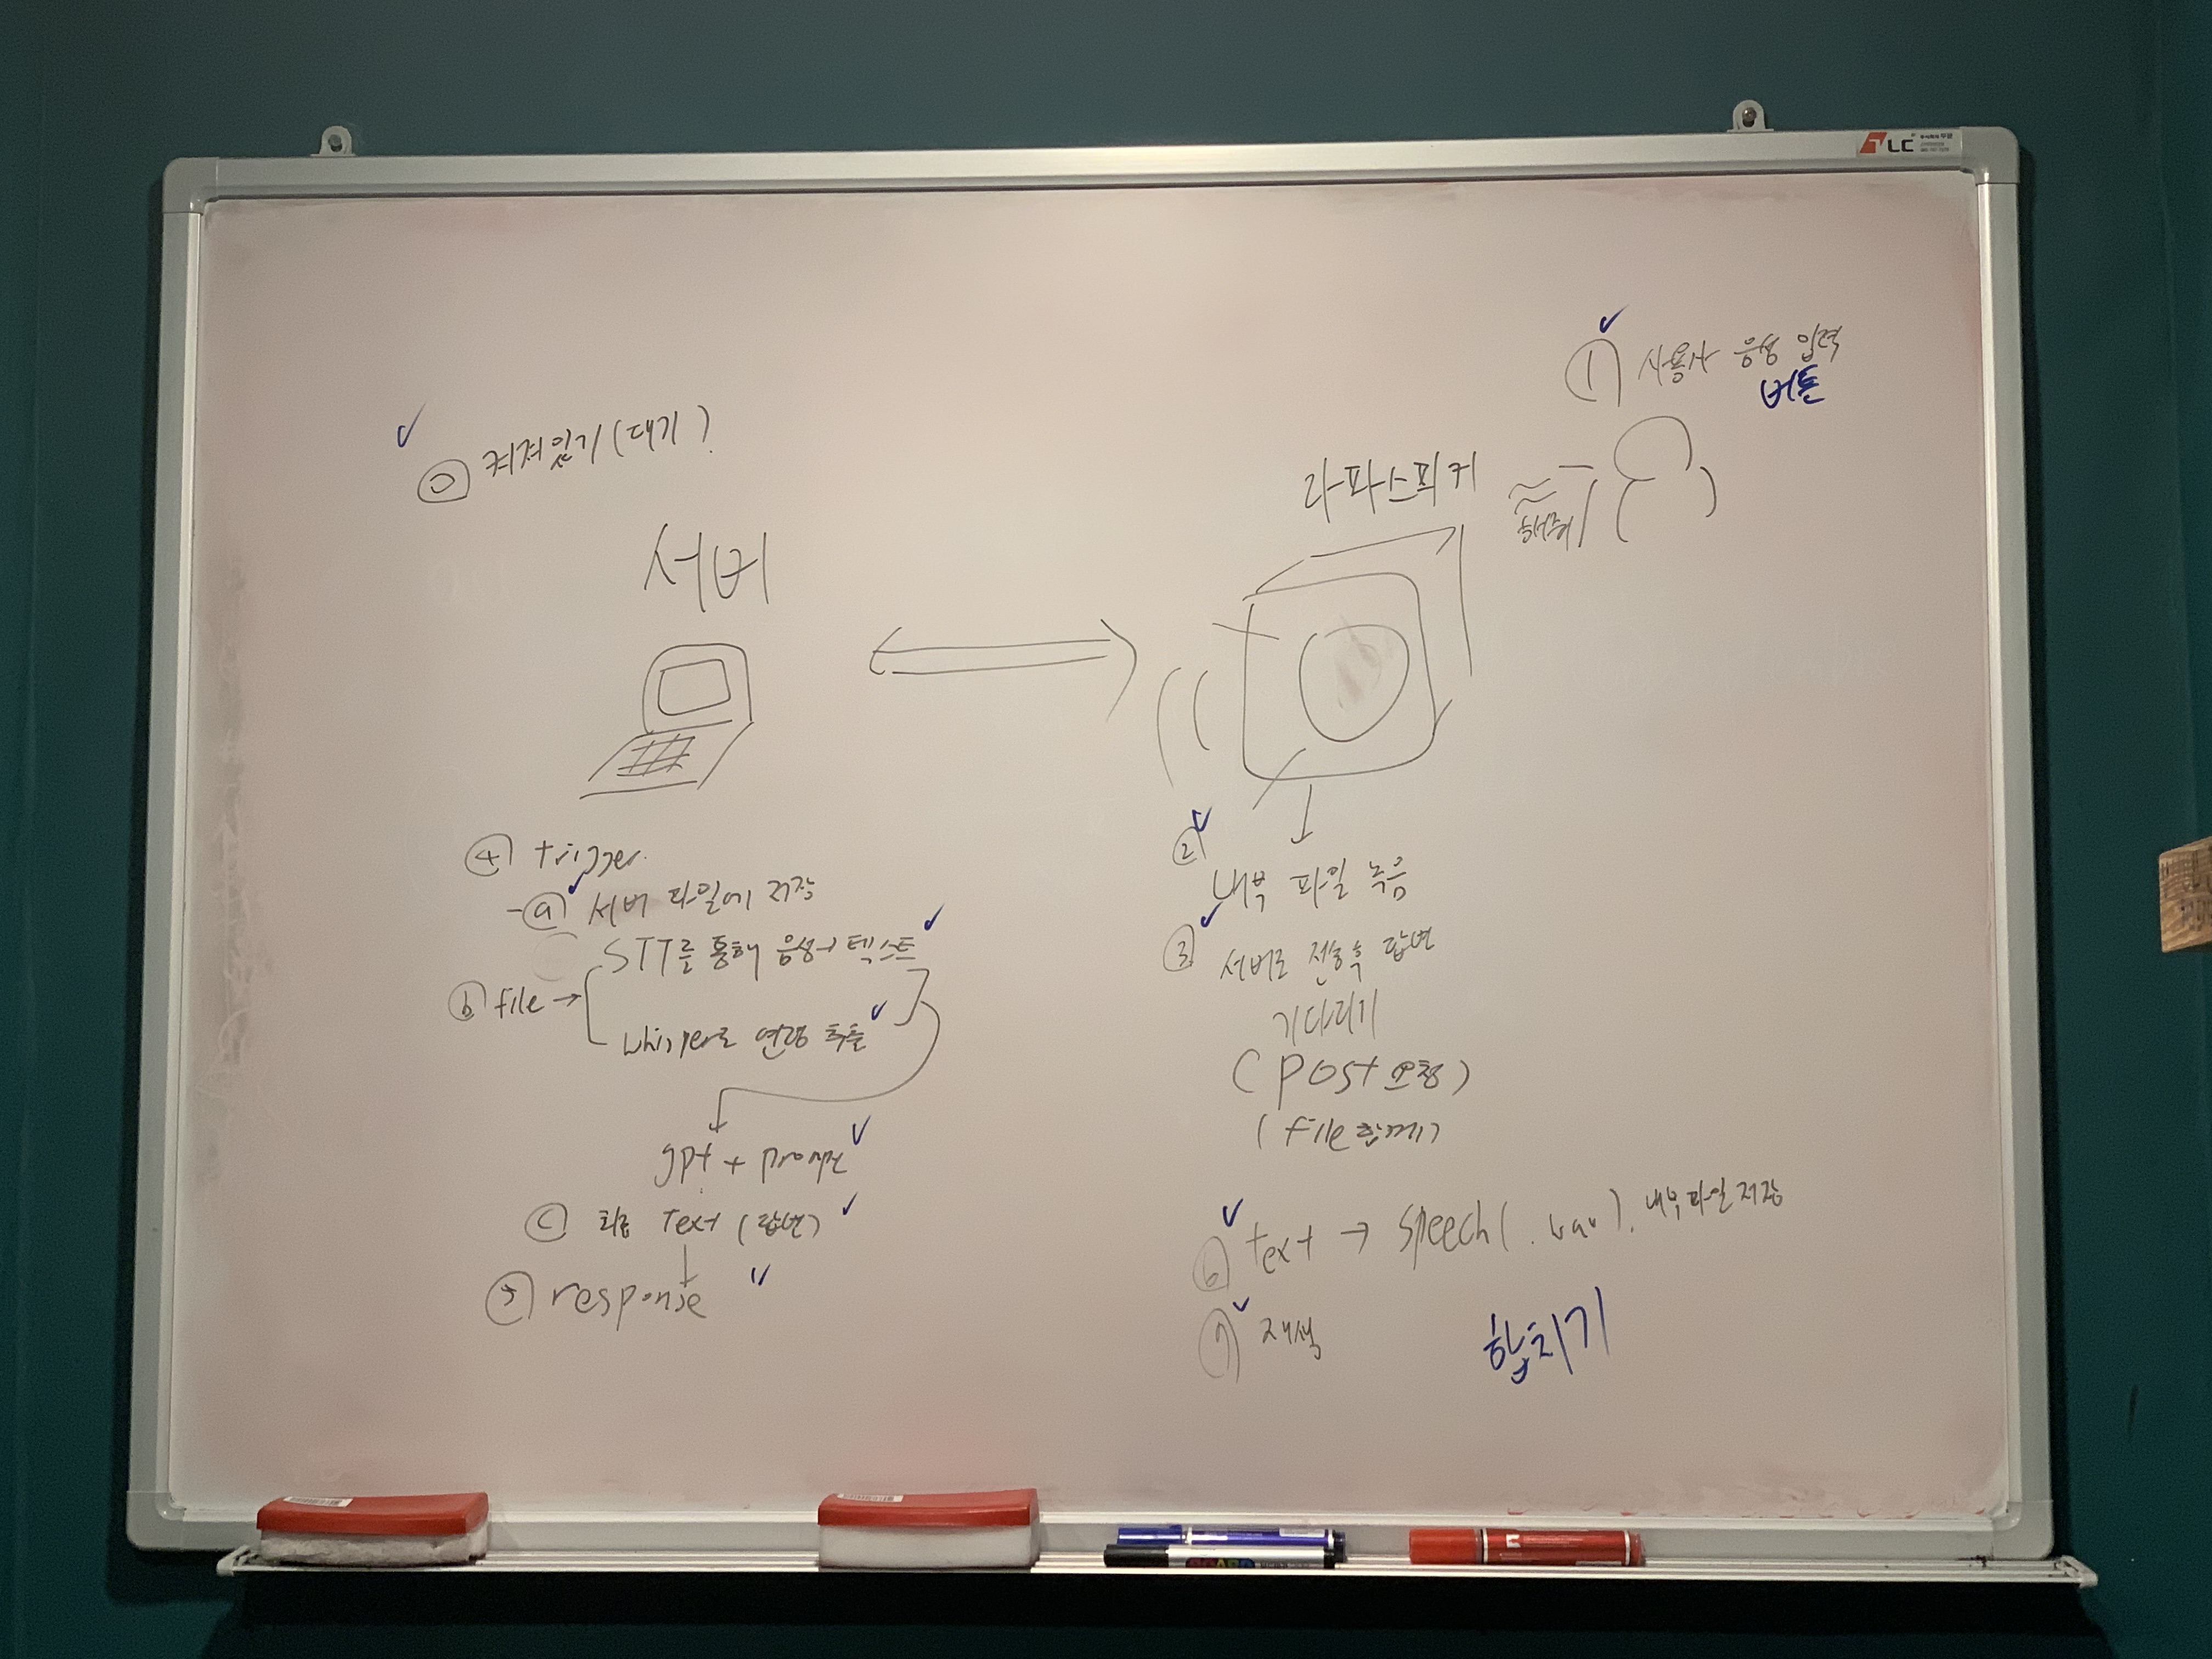 LC
① 사용자 음성 입력
버튼
⓪ 켜져있기 (대기)
서버
라파스피커
해줘
④ trigger.
-ⓐ 서버 파일에 저장
STT를 통해 음성→텍스트
ⓑ file →
whisper로 연령 추출
gpt + prompt
ⓒ 최종 Text (답변)
⑤ response
②
내부 파일 녹음
③ 서버로 전송후 답변
기다리기
(post 요청)
(file 함께)
⑥ text → speech (.wav). 내부파일 저장
⑦ 재생
합치기